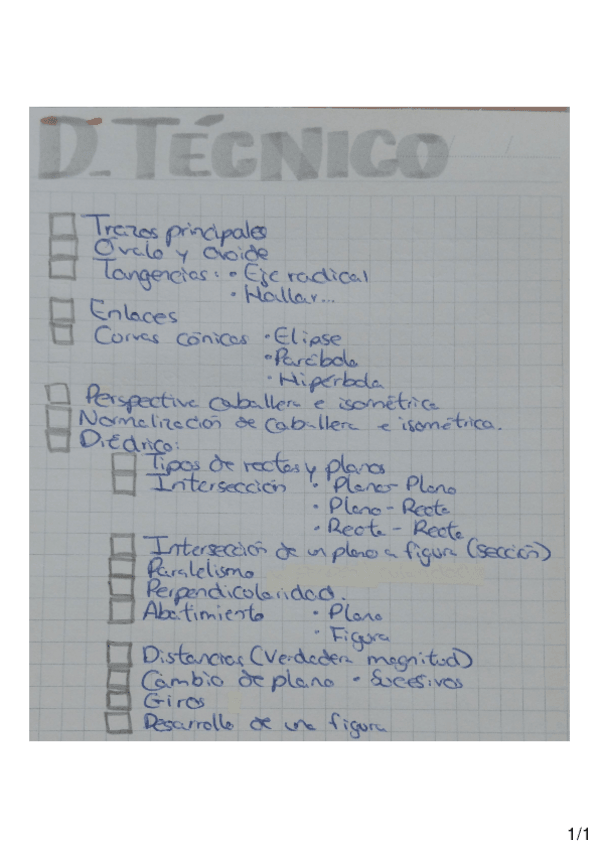 D. TÉCNICO
Trazos principales
Óvalo y ovoide
Tangencias: • Eje radical
• Hallar...
Enlaces
Curvas cónicas • Elipse
• Parábola
• Hipérbola
Perspectiva caballera e isométrica
Normalización de caballera e isométrica.
Diédrico:
Tipos de rectas y planos
Intersección • Plano - Plano
• Plano - Recta
• Recta - Recta
Intersección de un plano a figura (sección)
Paralelismo
Perpendicularidad.
Abatimiento • Plano
• Figura
Distancias (Verdadera magnitud)
Cambio de plano • Sucesivos
Giros
Desarrollo de una figura
1/1